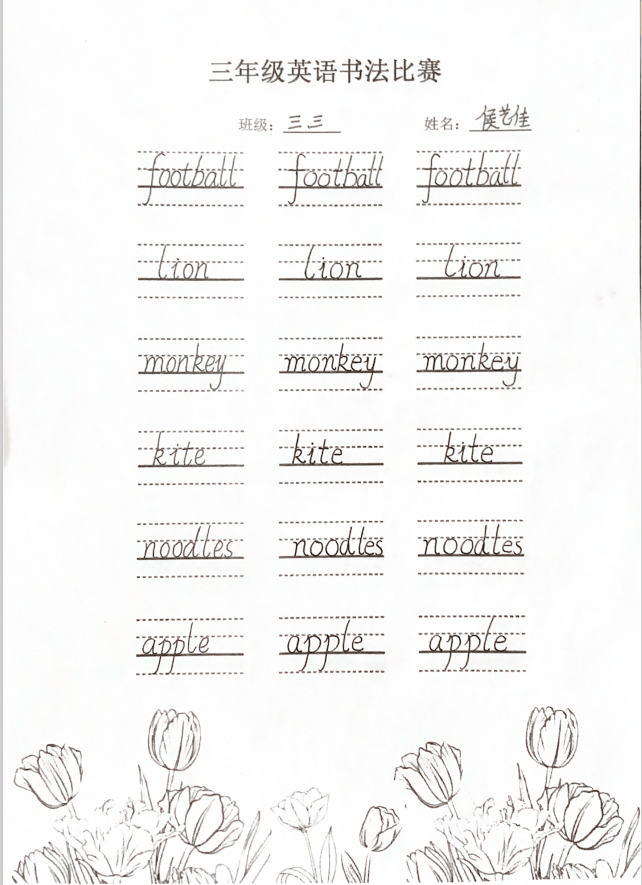 三年级英语书法比赛
班级：三三 姓名：侯艺佳
football football football
lion lion lion
monkey monkey monkey
kite kite kite
noodles noodles noodles
apple apple apple